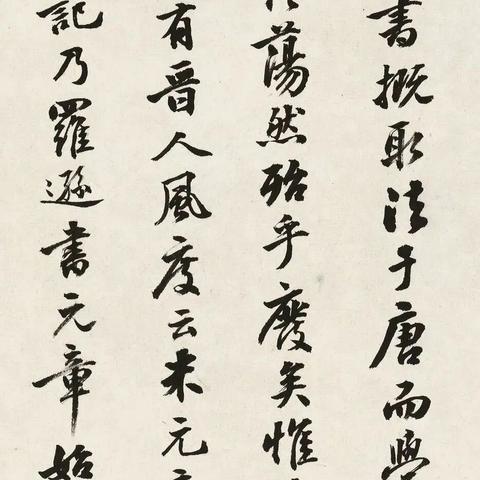 書概取法于唐而
蕩然殆乎廢矣惟
有晉人風度云米元
記乃羅遜書元章始